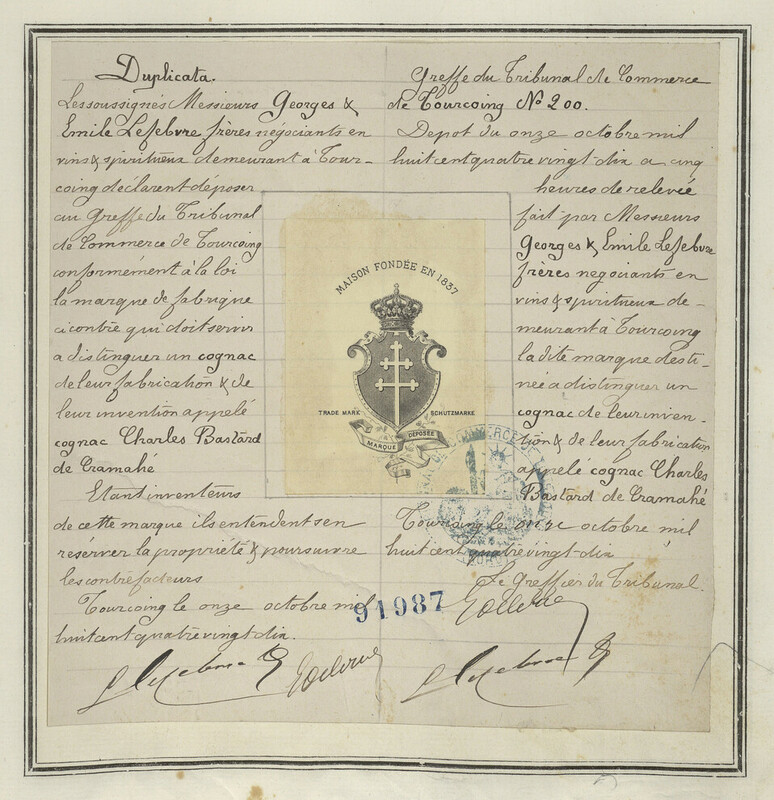 Duplicata.
Les soussignés Messieurs Georges &
Emile Lefebvre frères négociants en
vins & spiritueux demeurant à Tour-
coing déclarent déposer
au Greffe du Tribunal
de Commerce de Tourcoing
conformément à la loi
la marque de fabrique
ci contre qui doit servir
a distinguer un cognac
de leur fabrication & de
leur invention appelé
cognac Charles Bastard
de Cramahé
Etant inventeurs
de cette marque ils entendent s'en
réserver la propriété & poursuivre
les contrefacteurs
Tourcoing le onze octobre mil
huit cent quatre vingt dix.
MAISON FONDÉE EN 1837
TRADE MARK
SCHUTZMARKE
MARQUE DÉPOSÉE
Greffe du Tribunal de Commerce
de Tourcoing No 200.
Depot du onze octobre mil
huit cent quatre vingt dix a cinq
heures de relevée
fait par Messieurs
Georges & Emile Lefebvre
frères negociants en
vins & spiritueux de-
meurant à Tourcoing
la dite marque desti-
née a distinguer un
cognac de leur inven-
tion & de leur fabrication
appelé cognac Charles
Bastard de Cramahé
Tourcoing le onze octobre mil
huit cent quatre vingt dix
Le Greffier du Tribunal.
91987